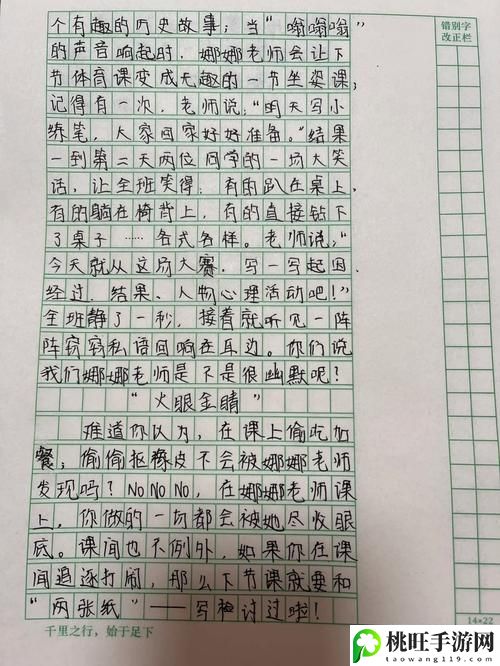 错别字
改正栏
个有趣的历史故事；当“嗡嗡嗡”
的声音响起时，娜娜老师会让下
节体育课变成无趣的一节坐姿课，
记得有一次，老师说：“明天写小
练笔，大家回家好好准备。”结果
一到第二天两位同学的一场大笑
话，让全班笑得：有的趴在桌上，
有的躺在椅背上，有的直接钻下
了桌子……各式各样。老师说：“
今天就从这场大赛，写一写起因、
经过、结果、人物心理活动吧！”
全班静了一秒，接着就听见一阵
阵窃窃私语回响在耳边。你们说
我们娜娜老师是不是很幽默呢？
“火眼金睛”
难道你以为，在课上偷吃加
餐；偷偷抠橡皮不会被娜娜老师
发现吗？NO NO NO，在娜娜老师课
上，你做的一切都会被她尽收眼
底。课间也不例外，如果你在课
间追逐打闹，那么下节课就要和
“两张纸”——写检讨过啦！
千里之行，始于足下
14×22
桃旺手游网
taowang119.com